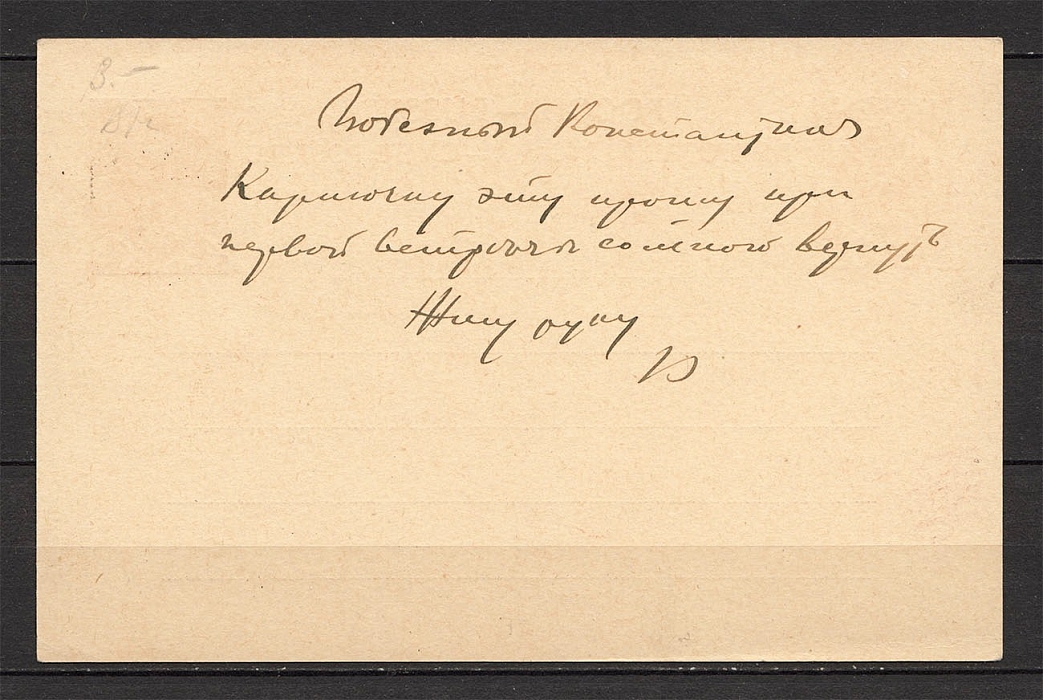 3.-
Любезный Константин
Карточку эту прошу при
первой встрече со мною вернуть
Жму руку
В